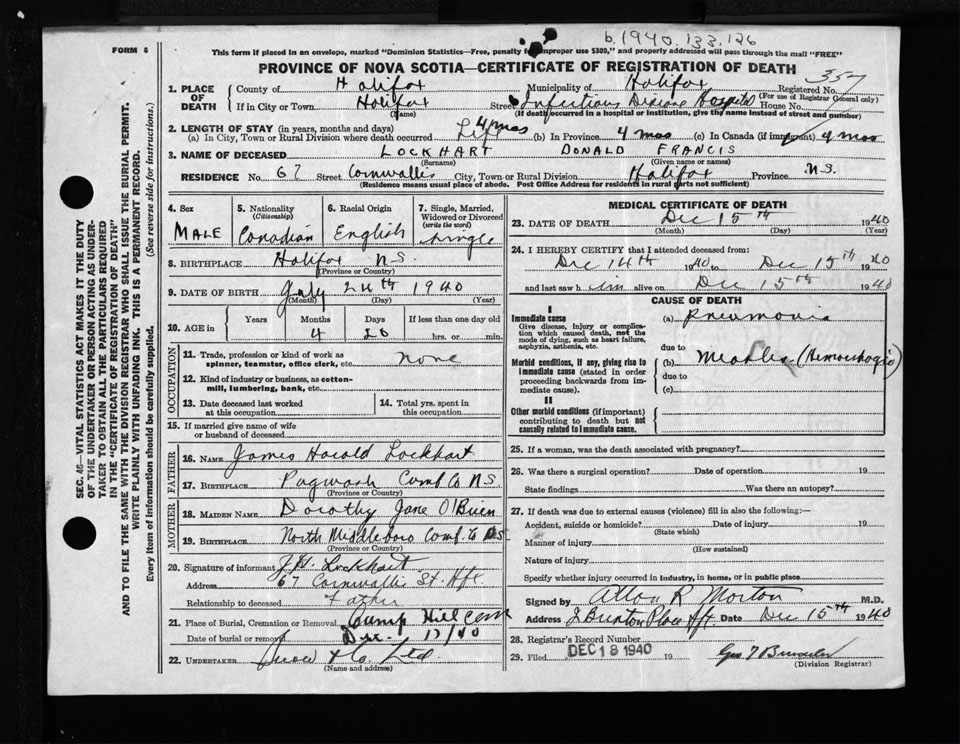 b. 1940. 133. 126
FORM 6
This form if placed in an envelope, marked "Dominion Statistics—Free, penalty for improper use $300," and properly addressed will pass through the mail "FREE"
PROVINCE OF NOVA SCOTIA—CERTIFICATE OF REGISTRATION OF DEATH
1. PLACE OF DEATH
County of Halifax
Municipality of Halifax
Registered No. 357
(For use of Registrar General only)
If in City or Town Halifax
(Name)
Street Infectious Disease Hospital House No.
(If death occurred in a hospital or institution, give its name instead of street and number)
2. LENGTH OF STAY (in years, months and days)
(a) In City, Town or Rural Division where death occurred Life 4 mos (b) In Province 4 mos (c) In Canada (if immigrant) 4 mos
3. NAME OF DECEASED LOCKHART DONALD FRANCIS
(Surname) (Given name or names)
RESIDENCE No. 67 Street Cornwallis City, Town or Rural Division Halifax Province N.S.
(Residence means usual place of abode. Post Office Address for residents in rural parts not sufficient)
4. Sex
MALE
5. Nationality
(Citizenship)
Canadian
6. Racial Origin
English
7. Single, Married, Widowed or Divorced
(write the word)
Single
8. BIRTHPLACE Halifax N.S.
(Province or Country)
9. DATE OF BIRTH July 24th 1940
(Month) (Day) (Year)
10. AGE in
Years Months Days If less than one day old
4 20 hrs. or min.
OCCUPATION
11. Trade, profession or kind of work as spinner, teamster, office clerk, etc. none
12. Kind of industry or business, as cotton-mill, lumbering, bank, etc.
13. Date deceased last worked at this occupation
14. Total yrs. spent in this occupation
15. If married give name of wife or husband of deceased
FATHER
16. NAME James Harold Lockhart
17. BIRTHPLACE Pugwash Cumb Co N.S
(Province or Country)
MOTHER
18. MAIDEN NAME Dorothy Jane O'Brien
19. BIRTHPLACE North Middleboro Cumb. Co N.S
(Province or Country)
20. Signature of informant J.H. Lockhart
Address 67 Cornwallis St. Hfx
Relationship to deceased Father
21. Place of Burial, Cremation or Removal Camp Hill Cem
Date of burial or removal Dec. 17/40
22. UNDERTAKER Snow & Co. Ltd
(Name and address)
MEDICAL CERTIFICATE OF DEATH
23. DATE OF DEATH Dec 15th 1940
(Month) (Day) (Year)
24. I HEREBY CERTIFY that I attended deceased from:
Dec 14th 1940 to Dec 15th 1940
and last saw him alive on Dec 15th 1940
CAUSE OF DEATH
I
Immediate cause
Give disease, injury or complication which caused death, not the mode of dying, such as heart failure, asphyxia, asthenia, etc.
(a) Pneumonia
due to
Morbid conditions, if any, giving rise to immediate cause (stated in order proceeding backwards from immediate cause).
(b) Measles (Hemorrhagic)
due to
(c)
II
Other morbid conditions (if important) contributing to death but not causally related to immediate cause.
25. If a woman, was the death associated with pregnancy?
26. Was there a surgical operation? Date of operation 19
State findings Was there an autopsy?
27. If death was due to external causes (violence) fill in also the following:—
Accident, suicide or homicide? Date of injury 19
(State which)
Manner of injury
(How sustained)
Nature of injury
Specify whether injury occurred in industry, in home, or in public place
Signed by Allan R Morton M.D.
Address Place Hfx Date Dec 15th 1940
28. Registrar's Record Number
29. Filed DEC 18 1940 19
(Division Registrar)
SEC. 46—VITAL STATISTICS ACT MAKES IT THE DUTY
OF THE UNDERTAKER OR PERSON ACTING AS UNDER-
TAKER TO OBTAIN ALL THE PARTICULARS REQUIRED
IN THE "CERTIFICATE OF REGISTRATION OF DEATH"
AND TO FILE THE SAME WITH THE DIVISION REGISTRAR WHO SHALL ISSUE THE BURIAL PERMIT.
WRITE PLAINLY WITH UNFADING INK. THIS IS A PERMANENT RECORD.
Every item of information should be carefully supplied. (See reverse side for instructions.)